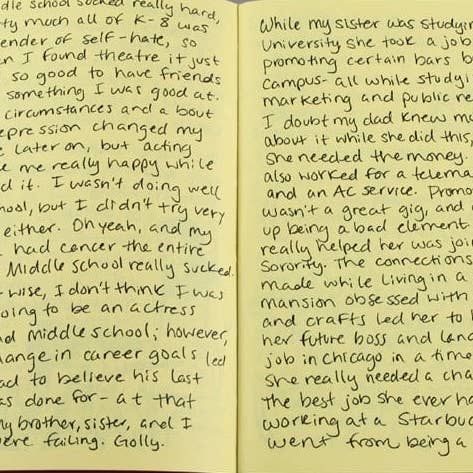 ddle school sucked really hard,
ty much all of K-8 was
ender of self-hate, so
n I found theatre it just
so good to have friends
something I was good at.
circumstances and a bout
epression changed my
e later on, but acting
e me really happy while
d it. I wasn't doing well
hool, but I didn't try very
either. Oh yeah, and my
had cancer the entire
Middle school really sucked.
-wise, I don't think I was
oing to be an actress
nd middle school; however,
hange in career goals led
ad to believe his last
as done for - at that
my brother, sister, and I
were failing. Golly.
While my sister was studyin
University she took a job
promoting certain bars b
campus - all while studyi
marketing and public re
I doubt my dad knew mu
about it while she did this,
she needed the money.
also worked for a telema
and an AC service. Promo
wasn't a great gig, and
up being a bad element
really helped her was join
sorority. The connections
made while living in a
mansion obsessed with
and crafts led her to h
her future boss and land
job in Chicago in a time
she really needed a cha
the best job she ever ha
working at a Starbuc
went from being a